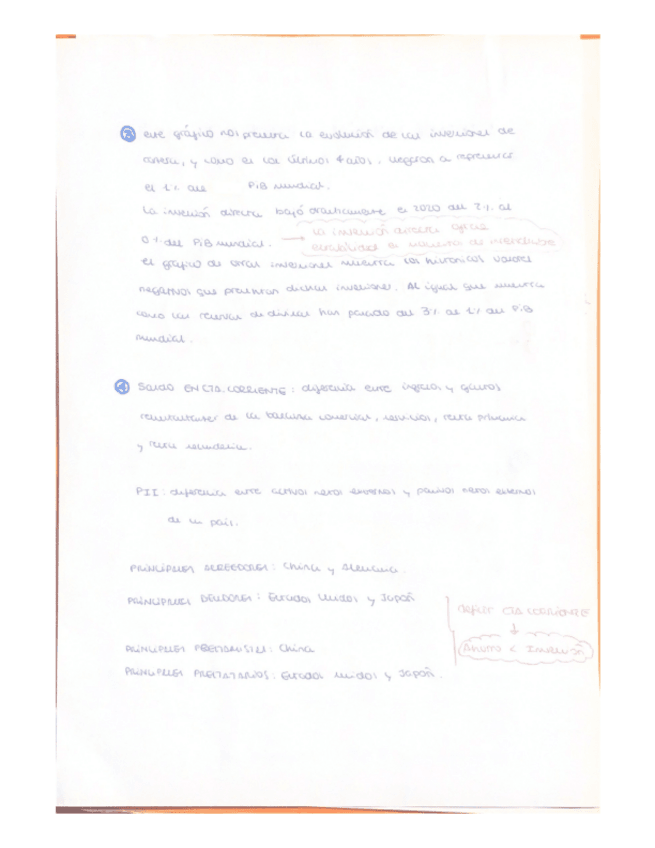 ③ este gráfico nos presenta la evolución de las inversiones de
cartera, y como en los últimos 4 años, llegaron a representar
el 1% del PiB mundial.
La inversión directa bajó drásticamente en 2020 del 2% al
0% del PiB mundial. → la inversión directa ofrece
estabilidad en
el gráfico de otras inversiones muestra los históricos valores
negativos que presentan dichas inversiones. Al igual que muestra
como las reservas de divisas han pasado del 3% al 1% del PiB
mundial.
④ Saldo EN CTA. CORRIENTE: diferencia entre ingresos y gastos
de la balanza comercial, servicios, renta primaria
y renta secundaria.
PII: diferencia entre activos netos externos y pasivos netos externos
de un país.
PRINCIPALES ACREEDORES: China y Alemania.
PRINCIPALES DEUDORES: Estados Unidos y Japón
déficit CTA CORRIENTE
↓
Ahorro < Inversión
PRINCIPALES PRESTAMISTAS: China
PRINCIPALES PRESTATARIOS: Estados Unidos y Japón.